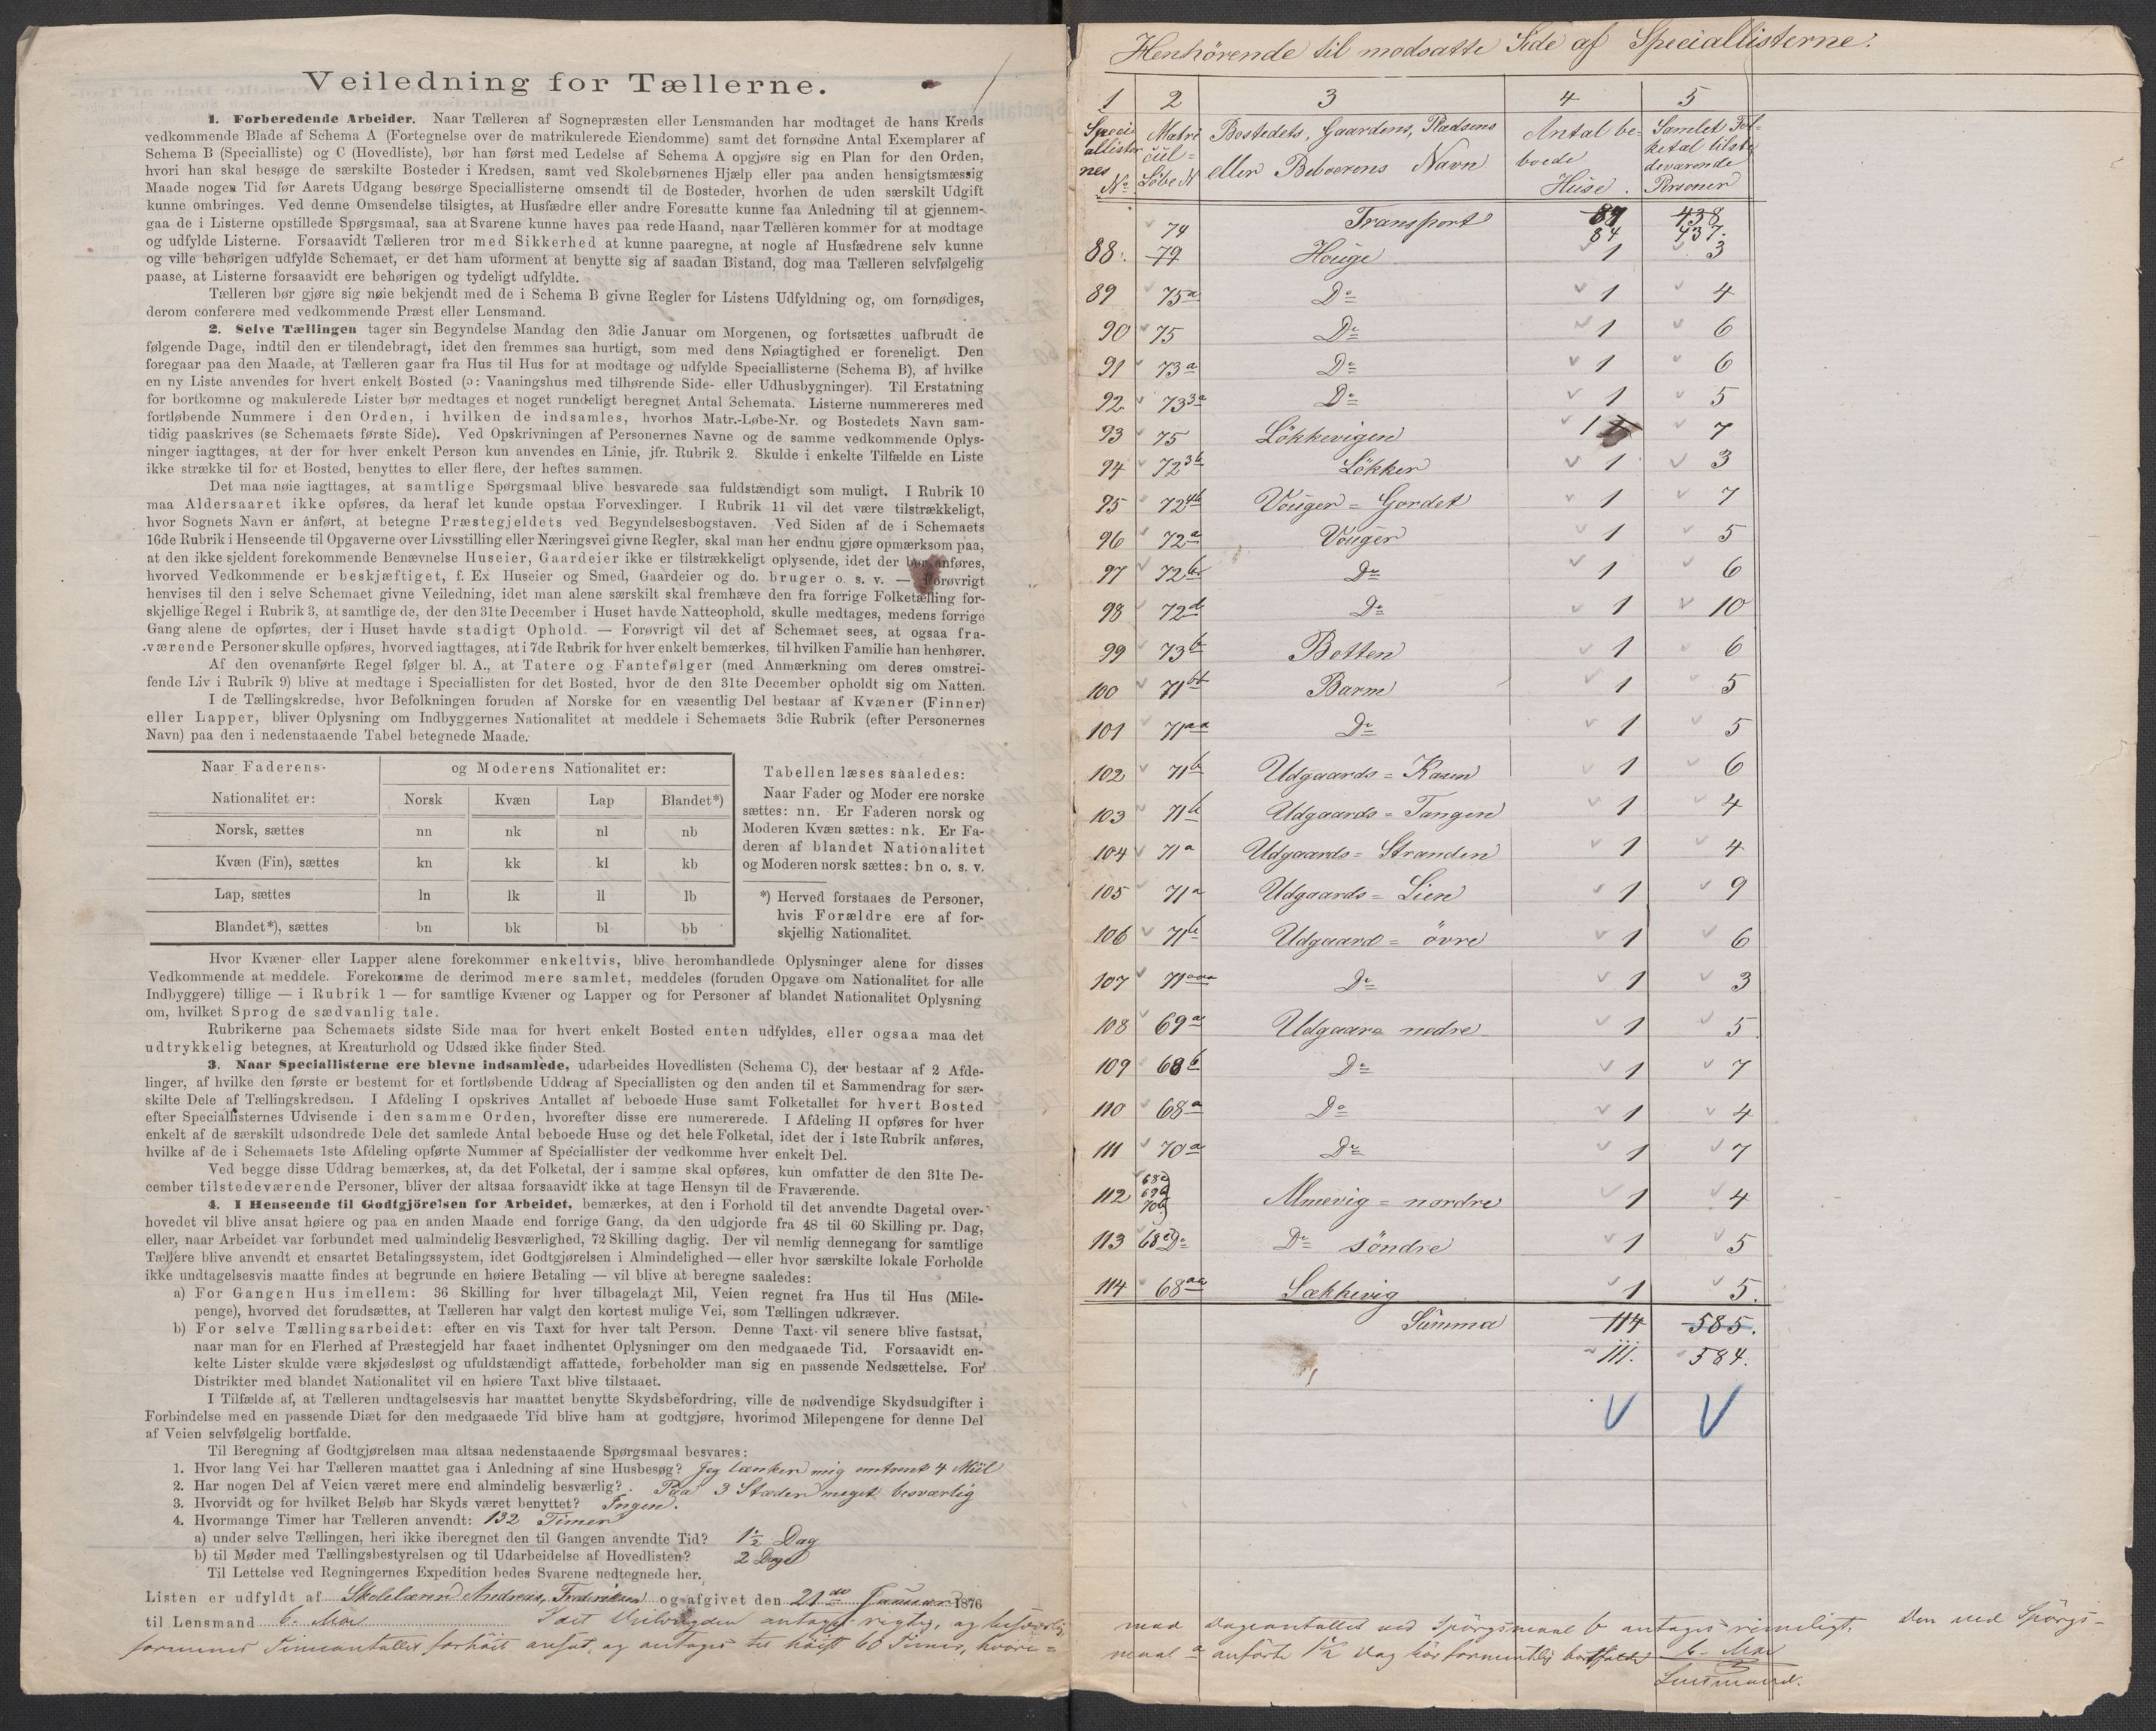 Veiledning for Tællerne.
1. Forberedende Arbeider. Naar Tælleren af Sognepræsten eller Lensmanden har modtaget de hans Kreds
vedkommende Blade af Schema A (Fortegnelse over de matrikulerede Eiendomme) samt det fornødne Antal Exemplarer af
Schema B (Specialliste) og C (Hovedliste), bør han først med Ledelse af Schema A opgjøre sig en Plan for den Orden,
hvori han skal besøge de særskilte Bosteder i Kredsen, samt ved Skolebørnenes Hjælp eller paa anden hensigtsmæssig
Maade nogen Tid før Aarets Udgang besørge Speciallisterne omsendt til de Bosteder, hvorhen de uden særskilt Udgift
kunne ombringes. Ved denne Omsendelse tilsigtes, at Husfædre eller andre Foresatte kunne faa Anledning til at gjennem-
gaa de i Listerne opstillede Spørgsmaal, saa at Svarene kunne haves paa rede Haand, naar Tælleren kommer for at modtage
og udfylde Listerne. Forsaavidt Tælleren tror med Sikkerhed at kunne paaregne, at nogle af Husfædrene selv kunne
og ville behørigen udfylde Schemaet, er det ham uforment at benytte sig af saadan Bistand, dog maa Tælleren selvfølgelig
paase, at Listerne forsaavidt ere behørigen og tydeligt udfyldte.
Tælleren bør gjøre sig nøie bekjendt med de i Schema B givne Regler for Listens Udfyldning og, om fornødiges,
derom conferere med vedkommende Præst eller Lensmand.
2. Selve Tællingen tager sin Begyndelse Mandag den 3die Januar om Morgenen, og fortsættes uafbrudt de
følgende Dage, indtil den er tilendebragt, idet den fremmes saa hurtigt, som med dens Nøiagtighed er foreneligt. Den
foregaar paa den Maade, at Tælleren gaar fra Hus til Hus for at modtage og udfylde Speciallisterne (Schema B), af hvilke
en ny Liste anvendes for hvert enkelt Bosted (ɔ: Vaaningshus med tilhørende Side- eller Udhusbygninger). Til Erstatning
for bortkomne og makulerede Lister bør medtages et noget rundeligt beregnet Antal Schemata. Listerne nummereres med
fortløbende Nummere i den Orden, i hvilken de indsamles, hvorhos Matr.-Løbe-Nr. og Bostedets Navn sam-
tidig paaskrives (se Schemaets første Side). Ved Opskrivningen af Personernes Navne og de samme vedkommende Oplys-
ninger iagttages, at der for hver enkelt Person kun anvendes en Linie, jfr. Rubrik 2. Skulde i enkelte Tilfælde en Liste
ikke strække til for et Bosted, benyttes to eller flere, der heftes sammen.
Det maa nøie iagttages, at samtlige Spørgsmaal blive besvarede saa fuldstændigt som muligt. I Rubrik 10
maa Aldersaaret ikke opføres, da heraf let kunde opstaa Forvexlinger. I Rubrik 11 vil det være tilstrækkeligt,
hvor Sognets Navn er anført, at betegne Præstegjeldets ved Begyndelsesbogstaven. Ved Siden af de i Schemaets
16de Rubrik i Henseende til Opgaverne over Livsstilling eller Næringsvei givne Regler, skal man her endnu gjøre opmærksom paa,
at den ikke sjeldent forekommende Benævnelse Huseier, Gaardeier ikke er tilstrækkeligt oplysende, idet der bør anføres,
hvorved Vedkommende er beskjæftiget, f. Ex Huseier og Smed, Gaardeier og do. bruger o. s. v. — Forøvrigt
henvises til den i selve Schemaet givne Veiledning, idet man alene særskilt skal fremhæve den fra forrige Folketælling for-
skjellige Regel i Rubrik 3, at samtlige de, der den 31te December i Huset havde Natteophold, skulle medtages, medens forrige
Gang alene de opførtes, der i Huset havde stadigt Ophold. — Forøvrigt vil det af Schemaet sees, at ogsaa fra-
værende Personer skulle opføres, hvorved iagttages, at i 7de Rubrik for hver enkelt bemærkes, til hvilken Familie han henhører.
Af den ovenanførte Regel følger bl. A., at Tatere og Fantefølger (med Anmærkning om deres omstrei-
fende Liv i Rubrik 9) blive at medtage i Speciallisten for det Bosted, hvor de den 31te December opholdt sig om Natten.
I de Tællingskredse, hvor Befolkningen foruden af Norske for en væsentlig Del bestaar af Kvæner (Finner)
eller Lapper, bliver Oplysning om Indbyggernes Nationalitet at meddele i Schemaets 3die Rubrik (efter Personernes
Navn) paa den i nedenstaaende Tabel betegnede Maade.
Naar Faderens- og Moderens Nationalitet er:
Nationalitet er: Norsk Kvæn Lap Blandet*)
Norsk, sættes nn nk nl nb
Kvæn (Fin), sættes kn kk kl kb
Lap, sættes ln lk ll lb
Blandet*), sættes bn bk bl bb
Tabellen læses saaledes:
Naar Fader og Moder ere norske
sættes: nn. Er Faderen norsk og
Moderen Kvæn sættes: nk. Er Fa-
deren af blandet Nationalitet
og Moderen norsk sættes: bn o. s. v.
*) Herved forstaaes de Personer,
hvis Forældre ere af for-
skjellig Nationalitet.
Hvor Kvæner eller Lapper alene forekommer enkeltvis, blive heromhandlede Oplysninger alene for disses
Vedkommende at meddele. Forekomme de derimod mere samlet, meddeles (foruden Opgave om Nationalitet for alle
Indbyggere) tillige — i Rubrik 1 — for samtlige Kvæner og Lapper og for Personer af blandet Nationalitet Oplysning
om, hvilket Sprog de sædvanlig tale.
Rubrikerne paa Schemaets sidste Side maa for hvert enkelt Bosted enten udfyldes, eller ogsaa maa det
udtrykkelig betegnes, at Kreaturhold og Udsæd ikke finder Sted.
3. Naar Speciallisterne ere blevne indsamlede, udarbeides Hovedlisten (Schema C), der bestaar af 2 Afde-
linger, af hvilke den første er bestemt for et fortløbende Uddrag af Speciallisten og den anden til et Sammendrag for sær-
skilte Dele af Tællingskredsen. I Afdeling I opskrives Antallet af beboede Huse samt Folketallet for hvert Bosted
efter Speciallisternes Udvisende i den samme Orden, hvorefter disse ere numererede. I Afdeling II opføres for hver
enkelt af de særskilt udsondrede Dele det samlede Antal beboede Huse og det hele Folketal, idet der i 1ste Rubrik anføres,
hvilke af de i Schemaets 1ste Afdeling opførte Nummer af Speciallister der vedkomme hver enkelt Del.
Ved begge disse Uddrag bemærkes, at, da det Folketal, der i samme skal opføres, kun omfatter de den 31te De-
cember tilstedeværende Personer, bliver der altsaa forsaavidt ikke at tage Hensyn til de Fraværende.
4. I Henseende til Godtgjörelsen for Arbeidet, bemærkes, at den i Forhold til det anvendte Dagetal over-
hovedet vil blive ansat høiere og paa en anden Maade end forrige Gang, da den udgjorde fra 48 til 60 Skilling pr. Dag,
eller, naar Arbeidet var forbundet med ualmindelig Besværlighed, 72 Skilling daglig. Der vil nemlig dennegang for samtlige
Tællere blive anvendt et ensartet Betalingssystem, idet Godtgjørelsen i Almindelighed — eller hvor særskilte lokale Forholde
ikke undtagelsesvis maatte findes at begrunde en høiere Betaling — vil blive at beregne saaledes:
a) For Gangen Hus imellem: 36 Skilling for hver tilbagelagt Mil, Veien regnet fra Hus til Hus (Mile-
penge), hvorved det forudsættes, at Tælleren har valgt den kortest mulige Vei, som Tællingen udkræver.
b) For selve Tællingsarbeidet: efter en vis Taxt for hver talt Person. Denne Taxt vil senere blive fastsat,
naar man for en Flerhed af Præstegjeld har faaet indhentet Oplysninger om den medgaaede Tid. Forsaavidt en-
kelte Lister skulde være skjødesløst og ufuldstændigt affattede, forbeholder man sig en passende Nedsættelse. For
Distrikter med blandet Nationalitet vil en høiere Taxt blive tilstaaet.
I Tilfælde af, at Tælleren undtagelsesvis har maattet benytte Skydsbefordring, ville de nødvendige Skydsudgifter i
Forbindelse med en passende Diæt for den medgaaede Tid blive ham at godtgjøre, hvorimod Milepengene for denne Del
af Veien selvfølgelig bortfalde.
Til Beregning af Godtgjørelsen maa altsaa nedenstaaende Spørgsmaal besvares:
1. Hvor lang Vei har Tælleren maattet gaa i Anledning af sine Husbesøg? Jeg tænker mig omtrent 4 Miil
2. Har nogen Del af Veien været mere end almindelig besværlig? Paa 3 Stæder meget besværlig
3. Hvorvidt og for hvilket Beløb har Skyds været benyttet? Ingen.
4. Hvormange Timer har Tælleren anvendt: 132 Timer
a) under selve Tællingen, heri ikke iberegnet den til Gangen anvendte Tid? 1½ Dag
b) til Møder med Tællingsbestyrelsen og til Udarbeidelse af Hovedlisten? 2 Dage
Til Lettelse ved Regningernes Expedition bedes Svarene nedtegnede her.
Listen er udfyldt af Skolelærer Andreas Fredriksen og afgivet den 21de Januar 1876
til Lensmand C. Moe
antages rigtig, og
Timeantallet forhøit ansat, og antages til høist 60 Timer,
Henhörende til modsatte Side af Speciallisterne.
1 2 3 4 5
Speci allister nes No. Matricul= Löbe N Bostedets, Gaardens, Pladsens eller Beboerens Navn Antal be- boede Huse. Samlet Fol- ketal tilste deværende Personer
74 Transport 84 438 437.
88. 79 Houge 1 3
89 75a Do 1 4
90 75 Do 1 6
91 73a Do 1 6
92 73 3a Do 1 5
93 75 Lökkevigen 1 7
94 72 3b Lökker 1 3
95 72 4b Vouger = Gordet 1 7
96 72a Vouger 1 5
97 72b Do 1 6
98 72d Do 1 10
99 73b Botten 1 6
100 71bb Barm 1 5
101 71aa Do 1 5
102 71b Udgaards = Kasen 1 6
103 71b Udgaards = Tangen 1 4
104 71a Udgaards = Stranden 1 4
105 71a Udgaards = Lien 1 9
106 71b Udgaard = övre 1 6
107 71aaa Do 1 3
108 69a Udgaard nedre 1 5
109 68b Do 1 7
110 68a Do 1 4
111 70a Do 1 7
112 68c 69b 70b Almevig = nordre 1 4
113 68c Do Do söndre 1 5
114 68aa Sækkevig 1 5.
Summa 114 585.
111. 584.
mod Dageantallet ved Spörgsmaal b antages rimeligt. Den ved Spörgs-
maal a anförte 1½ Dag bör formentlig bortfalde. C. Moe
Lensmand.